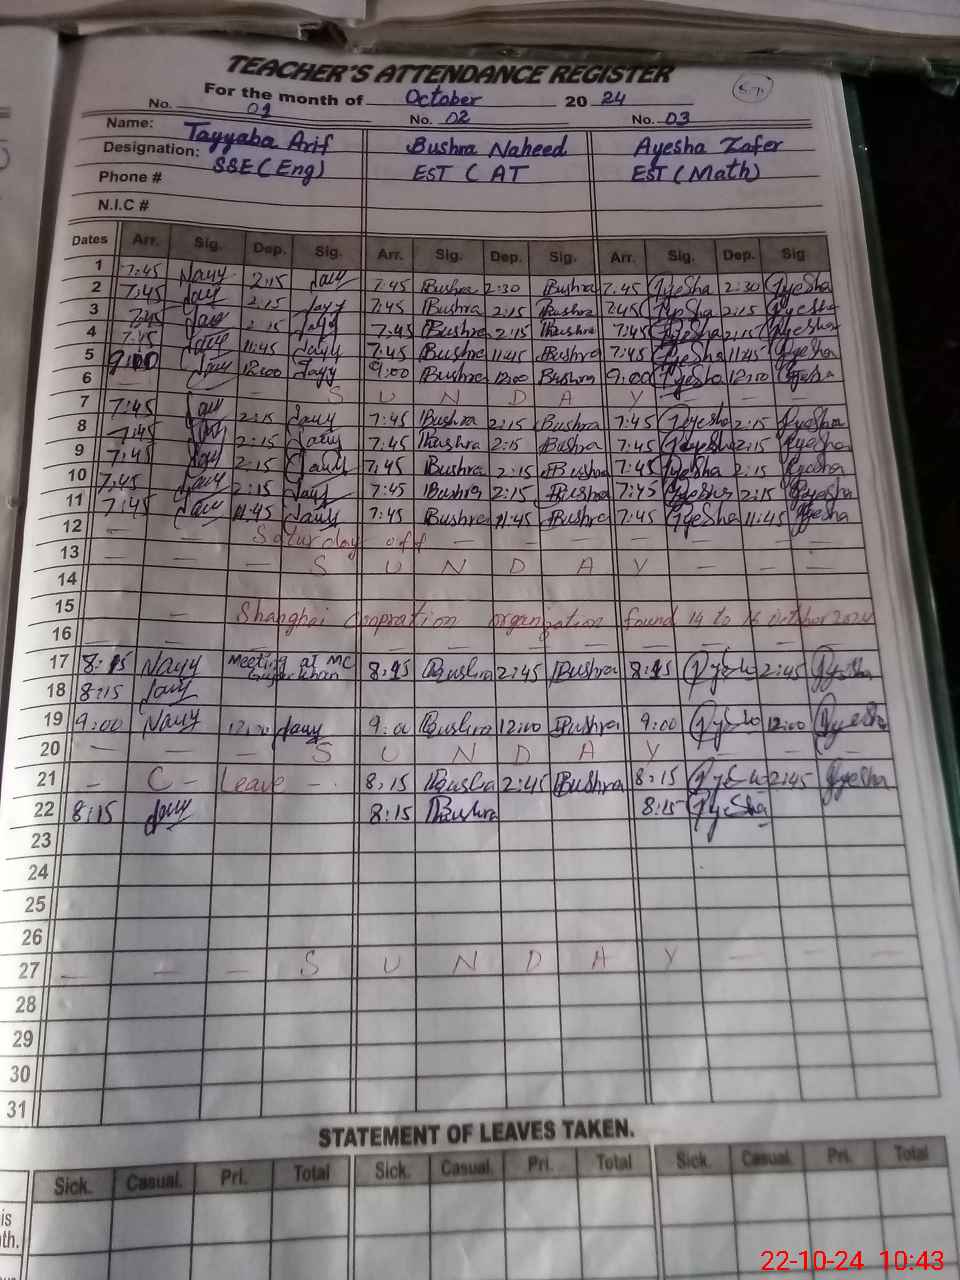 TEACHER'S ATTENDANCE REGISTER
For the month of October 2024
No. 01 No. 02 No. 03
Name: Tayyaba Arif Bushra Naheed Ayesha Zafer
Designation: SSE (Eng) EST ( AT EST (Math)
Phone #
N.I.C #
Dates Arr. Sig. Dep. Sig. Arr. Sig. Dep. Sig. Arr. Sig. Dep. Sig.
1 7:45 2:15 7:45 Bushra 2:30 Bushra 7:45 Ayesha 2:30 Ayesha
2 7:45 2:15 7:45 Bushra 2:15 Bushra 7:45 Ayesha 2:15 Ayesha
3 7:45 2:15 7:45 Bushra 2:15 Bushra 7:45 Ayesha 2:15 Ayesha
4 7:45 11:45 7:45 Bushra 11:45 Bushra 7:45 Ayesha 11:45 Ayesha
5 9:00 12:00 9:00 Bushra 12:00 Bushra 9:00 Ayesha 12:00 Ayesha
6 — — — S U N D A Y — — —
7 7:45 2:15 7:45 Bushra 2:15 Bushra 7:45 Ayesha 2:15 Ayesha
8 7:45 2:15 7:45 Bushra 2:15 Bushra 7:45 Ayesha 2:15 Ayesha
9 7:45 2:15 7:45 Bushra 2:15 Bushra 7:45 Ayesha 2:15 Ayesha
10 7:45 2:15 7:45 Bushra 2:15 Bushra 7:45 Ayesha 2:15 Ayesha
11 7:45 11:45 7:45 Bushra 11:45 Bushra 7:45 Ayesha 11:45 Ayesha
12 — — Saturday off — — — — — —
13 — — — S U N D A Y — — —
14
15 — — Shanghai Coopration organization found 14 to 16 october 2024
16 — —
17 8:15 Meeting at MC Gujar khan 8:15 Bushra 2:45 Bushra 8:15 Ayesha 2:45 Ayesha
18 8:15
19 9:00 12:00 9:00 Bushra 12:00 Bushra 9:00 Ayesha 12:00 Ayesha
20 — — — S U N D A Y — — —
21 — C - Leave — 8:15 Bushra 2:45 Bushra 8:15 Ayesha 2:45 Ayesha
22 8:15 8:15 Bushra 8:15 Ayesha
23
24
25
26
27 — — — S U N D A Y — — —
28
29
30
31
STATEMENT OF LEAVES TAKEN.
Sick. Casual. Pri. Total Sick. Casual. Pri. Total Sick. Casual. Pri. Total
is
th.
22-10-24 10:43